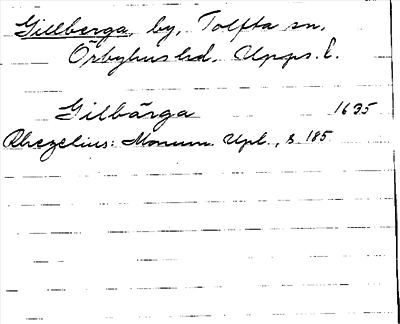 Gillberga, by, Tolfta sn,
Örbyhus hd, Upps. l.
Gilbärga 1635
Rhezelius: Monum. Upl., s 185